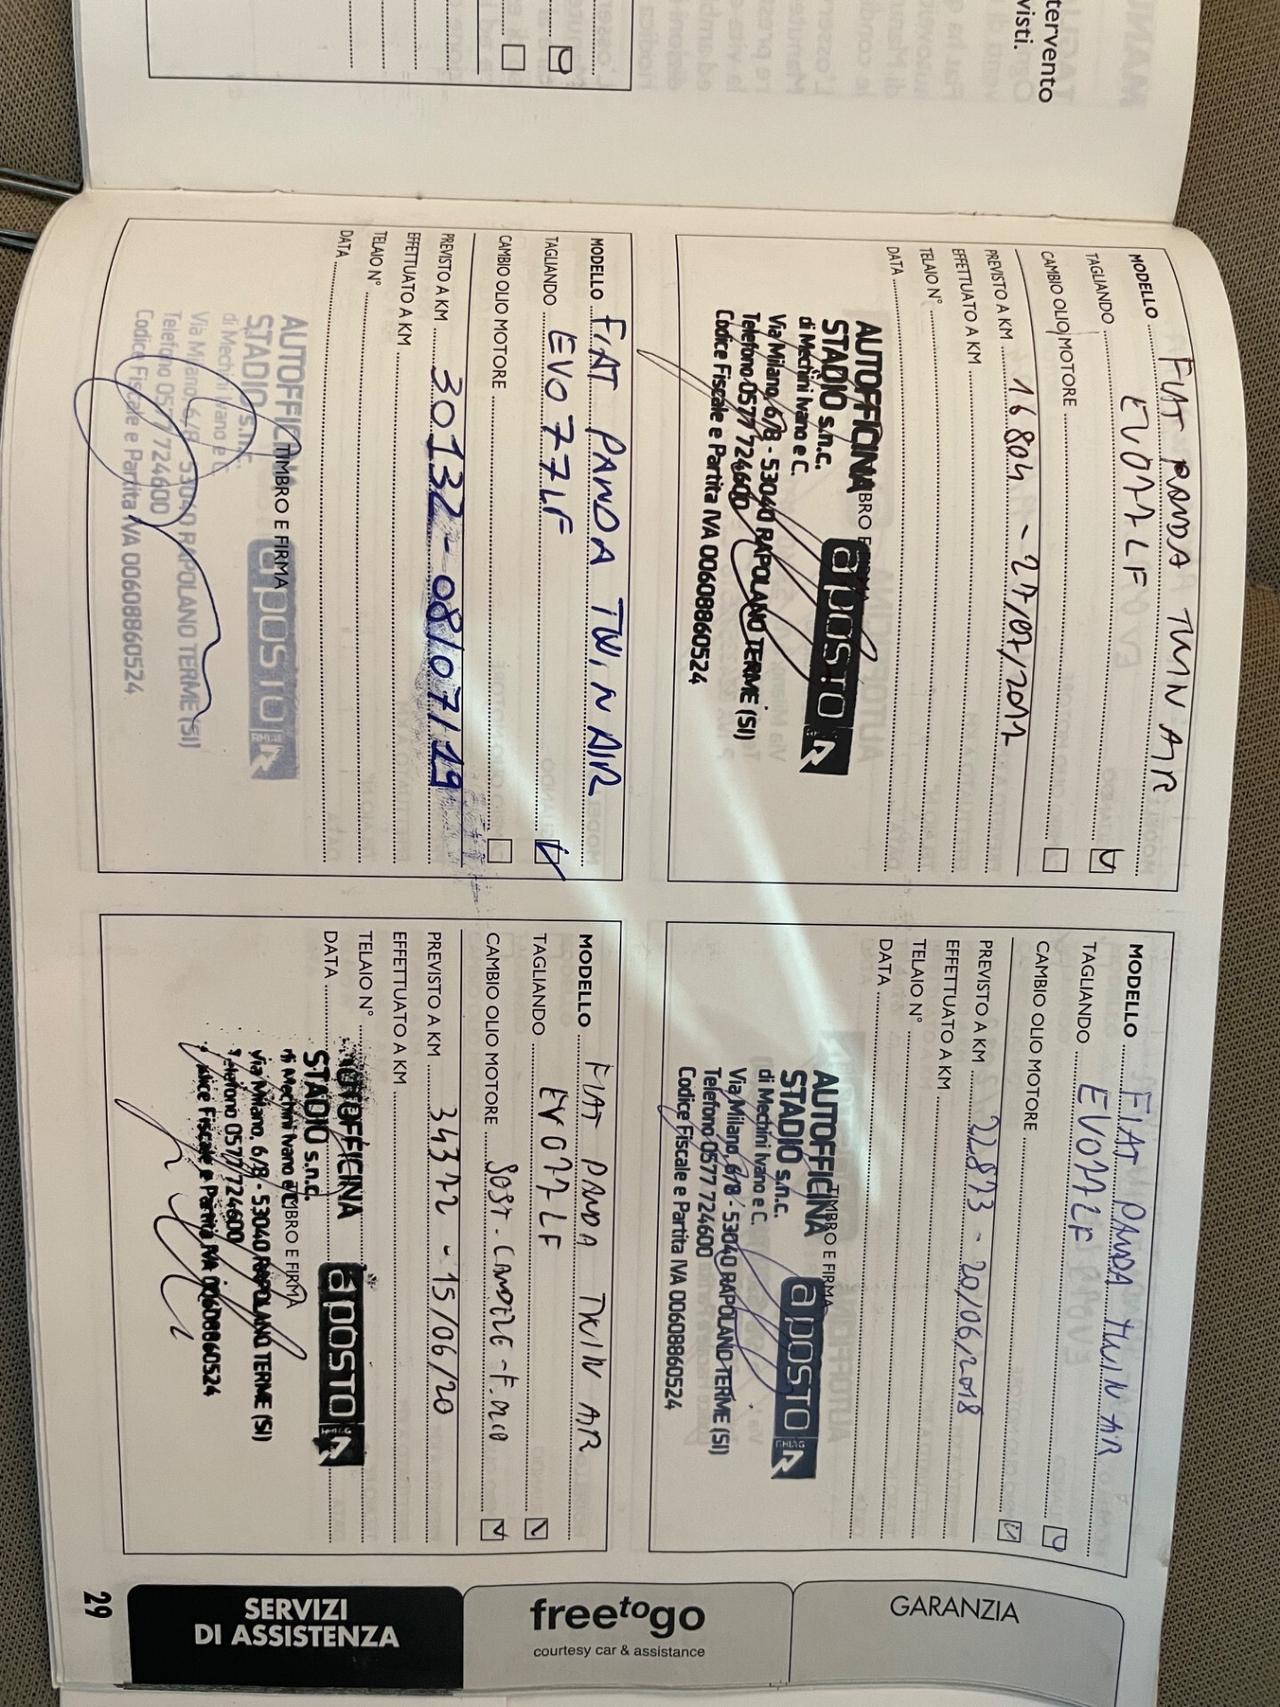 tervento
visti.
MODELLO FIAT PANDA TWIN AIR
TAGLIANDO EV077LF
CAMBIO OLIO MOTORE
PREVISTO A KM 16804 - 27/07/2017
EFFETTUATO A KM
TELAIO N°
DATA
BRO E
AUTOFFICINA
STADIO s.n.c.
di Mechini Ivano e C.
Via Milano, 6/8 - 53040 RAPOLANO TERME (SI)
Telefono 0577 724600
Codice Fiscale e Partita IVA 00608860524
a posto
RHIAG
MODELLO FIAT PANDA TWIN AIR
TAGLIANDO EV077LF
CAMBIO OLIO MOTORE
PREVISTO A KM 22873 - 20/06/2018
EFFETTUATO A KM
TELAIO N°
DATA
TIMBRO E FIRMA
AUTOFFICINA
STADIO s.n.c.
di Mechini Ivano e C.
Via Milano, 6/8 - 53040 RAPOLANO TERME (SI)
Telefono 0577 724600
Codice Fiscale e Partita IVA 00608860524
a posto
RHIAG
MODELLO FIAT PANDA TWIN AIR
TAGLIANDO EV077LF
CAMBIO OLIO MOTORE
PREVISTO A KM 30132 - 08/07/19
EFFETTUATO A KM
TELAIO N°
DATA
TIMBRO E FIRMA
AUTOFFICINA
STADIO s.n.c.
di Mechini Ivano e C.
Via Milano, 6/8 - 53040 RAPOLANO TERME (SI)
Telefono 0577 724600
Codice Fiscale e Partita IVA 00608860524
a posto
RHIAG
MODELLO FIAT PANDA TWIN AIR
TAGLIANDO EV077LF
CAMBIO OLIO MOTORE SOST - CANDELE -
PREVISTO A KM 34372 - 15/06/20
EFFETTUATO A KM
TELAIO N°
DATA
TIMBRO E FIRMA
AUTOFFICINA
STADIO s.n.c.
di Mechini Ivano e C.
Via Milano, 6/8 - 53040 RAPOLANO TERME (SI)
Telefono 0577 724600
Codice Fiscale e Partita IVA 00608860524
a posto
RHIAG
GARANZIA
freetogo
courtesy car & assistance
SERVIZI
DI ASSISTENZA
29